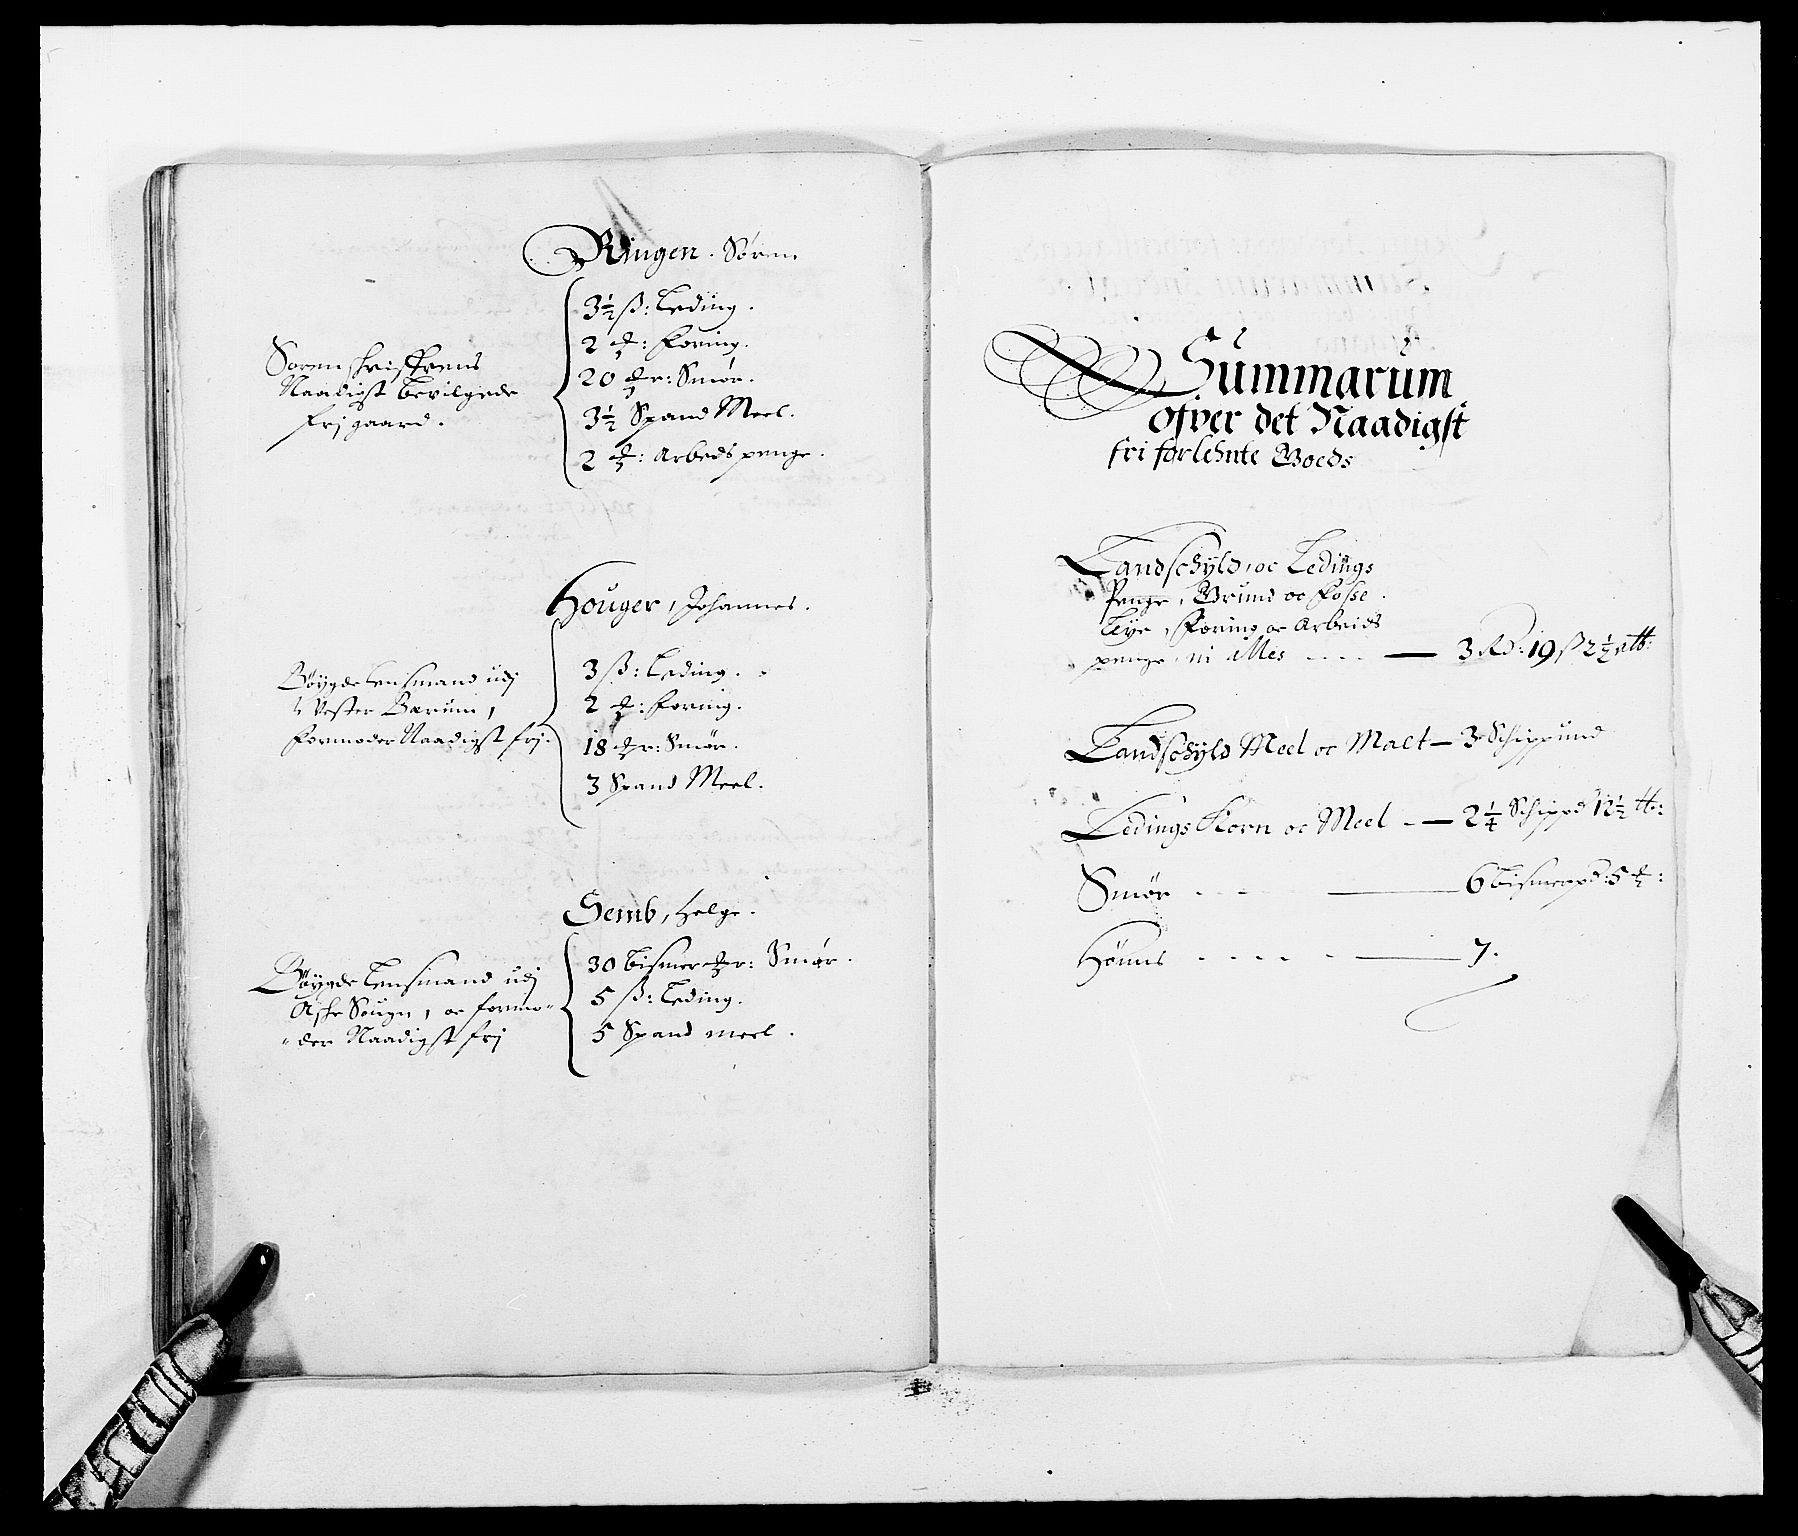 Ringen. Søren
Sorenschriffrens
Naadigst bevilgede
frj gaard.
3½ ß: Leding.
2 ₰: Foring.
20 ₰r: Smør.
3½ Spand Meel.
2 ₰: Arbeds penge.
Houger, Johannes.
Böÿgde Lensmand udj
Vester Barum,
Formoder Naadigst frj.
3 ß: Leding.
2 ₰: Foring.
18 ₰r: Smør.
3 Spand Meel.
Semb, Helge.
Böÿgde Lensmand udj
Aske Sougn, oc formo-
-der Naadigst frj
30 bismer ₰r: Smør.
5 ß: Leding.
5 Spand meel.
Summarum
ofver det Naadigst
fri forlehnte Goeds
Landschÿld, oc Ledings
Penge, Grund oc Fosse
Leÿe, Foring oc Arbeids
penge, in alles - - - - 3 Rd: 19 ß 2½ alb:
Landschÿld Meel oc Malt - 3 Schippund
Ledings Korn oc Meel - - 2¼ Schippd 12½ ℔:
Smør - - - - 6 bismerpd: 5 ₰:
Hønns - - - - - 7.